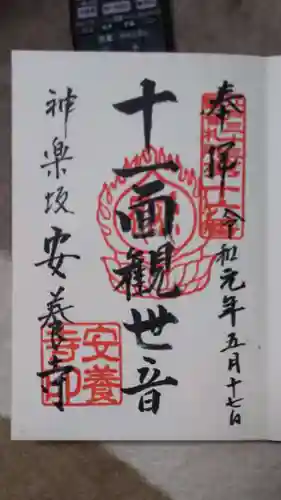 奉拝
令和元年五月十七日
十一面觀世音
神楽坂 安養寺
安養
寺印